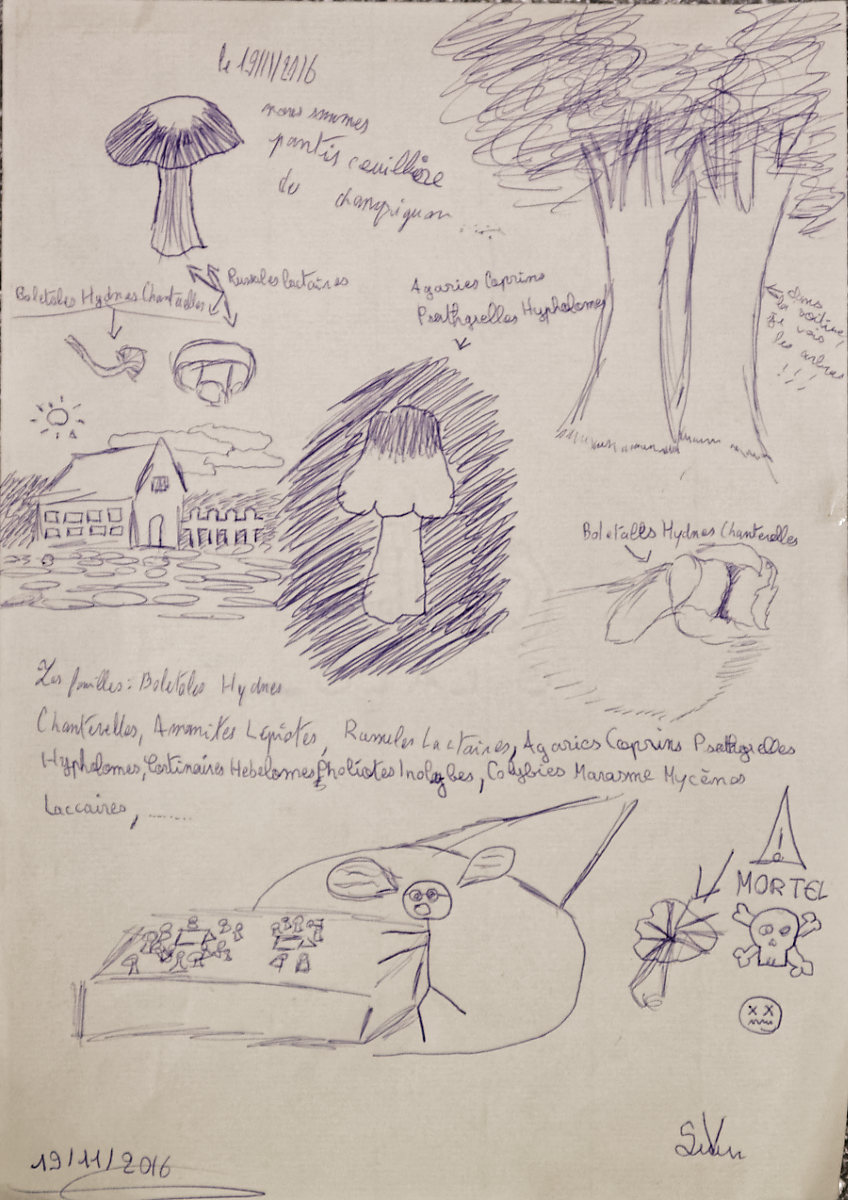 le 19/11/2016
nous sommes
partis ceuillère
de champignon
Russules Lactaires
Boletales Hydnes Chanterelles
Agarics Coprins
Psathyrelles Hypholomes
dans
la voiture,
je vois
les arbres
!!!
Boletalès Hydnes Chanterelles
Les familles: Boletales Hydnes
Chanterelles, Amanites Lépiotes, Russules Lactaires, Agarics Coprins Psathyrelles
Hypholomes, Cortinaires Hebelomes Pholiotes Inocybes, Colybies Marasme Mycènes
Laccaires, .......
!
MORTEL
19/11/2016